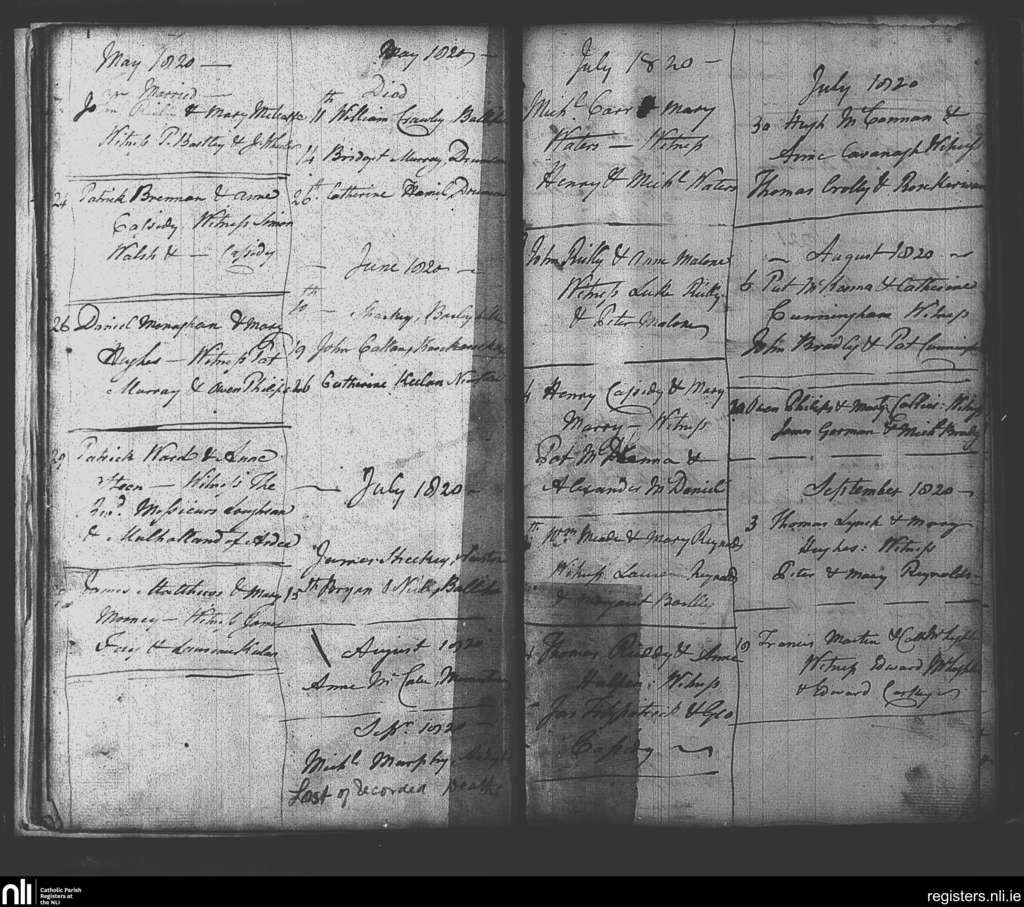 May 1820 —
Married —
& Mary Metcalfe
Witness P. Bartley & J.
24 Patrick Brennan & Anne
Cassidy Witness Simon
Walsh & — Cassidy
26 Daniel Monaghan & Mary
Hughes — Witness Pat
Murray & Owen Philips
29 Patrick Ward & Anne
— Witness The
Revd. Messieurs Loughran
& Mulholland of Ardee
James Matthews & Mary
Mooney — Witness James
& Laurence
May 1820 —
Died
11th William Crawly
14 Bridget Murray,
26th Catherine Hamil,
— June 1820 —
10th — Sharkey,
19 John Callan,
26 Catherine Keelan
— July 1820 —
James
15th
August 1820
Anne McCabe,
Sepr. 1820 —
Michl. Murphy,
Last of recorded Deaths
July 1820 —
Michl. Carr & Mary
Waters — Witness
Henry & Michl. Waters
John Reilly & Anne Malone
Witness Luke Reilly
& Peter Malone
4 Henry Cassidy & Mary
Marry — Witness
Pat McKenna &
Alexander McDaniel
Wm. Meade & Mary Reynolds
Witness Laurence Reynolds
& Margaret Bartley
Thomas Reddy & Anne
Halpen: Witness
Jas Fitzpatrick & Geo
Cassidy
July 1820
30 Hugh McCannan &
Anne Cavanagh Witness
Thomas Crolly & Rose
— August 1820 —
6 Pat McKenna & Catherine
Cunningham Witness
John Bradley & Pat Cunningham
Owen Philips & Mary Collins: Witness
James Gorman & Michl. Brady
September 1820 —
3 Thomas Lynch & Mary
Hughes: Witness
Peter & Mary Reynolds
10 Francis Martin &
Witness Edward
& Edward
nli
Catholic Parish
Registers at
the NLI
registers.nli.ie